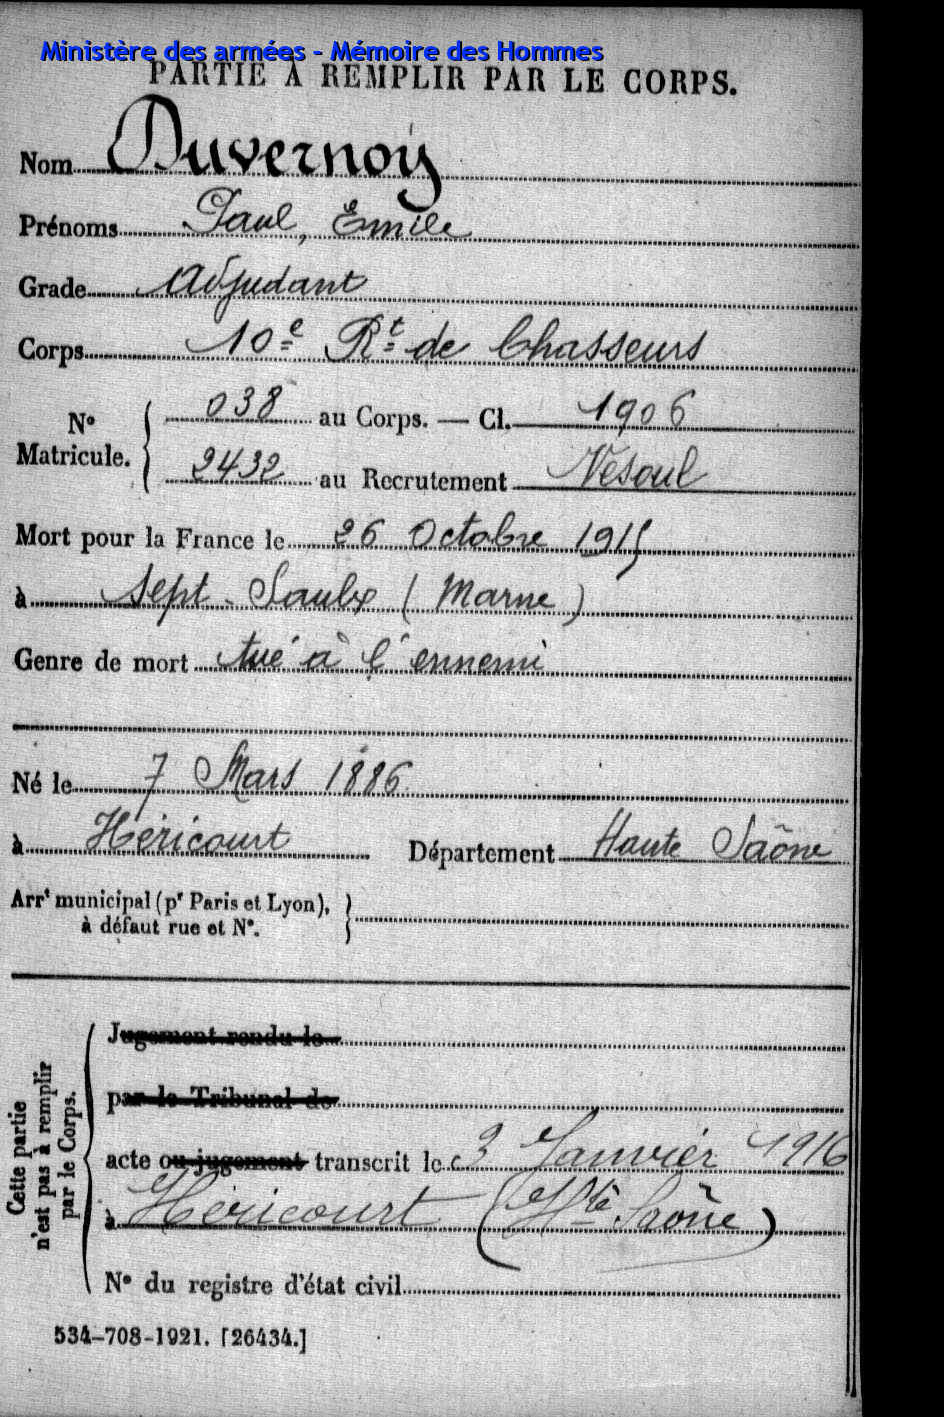 Ministère des armées - Mémoire des Hommes
PARTIE À REMPLIR PAR LE CORPS.
Nom Duvernoy
Prénoms Paul, Emile
Grade Adjudant
Corps 10e Rt de Chasseurs
N° Matricule. { 038 au Corps. — Cl. 1906
2432 au Recrutement Vesoul
Mort pour la France le 26 Octobre 1915
à Sept-Saulx (Marne)
Genre de mort tué à l'ennemi
Né le 7 Mars 1886
à Héricourt Département Haute Saône
Arrt municipal (pr Paris et Lyon), }
à défaut rue et N°.
Cette partie
n'est pas à remplir
par le Corps.
Jugement rendu le
par le Tribunal de
acte ou jugement transcrit le 3 Janvier 1916
à Héricourt (Hte Saône)
N° du registre d'état civil
534-708-1921. [26434.]